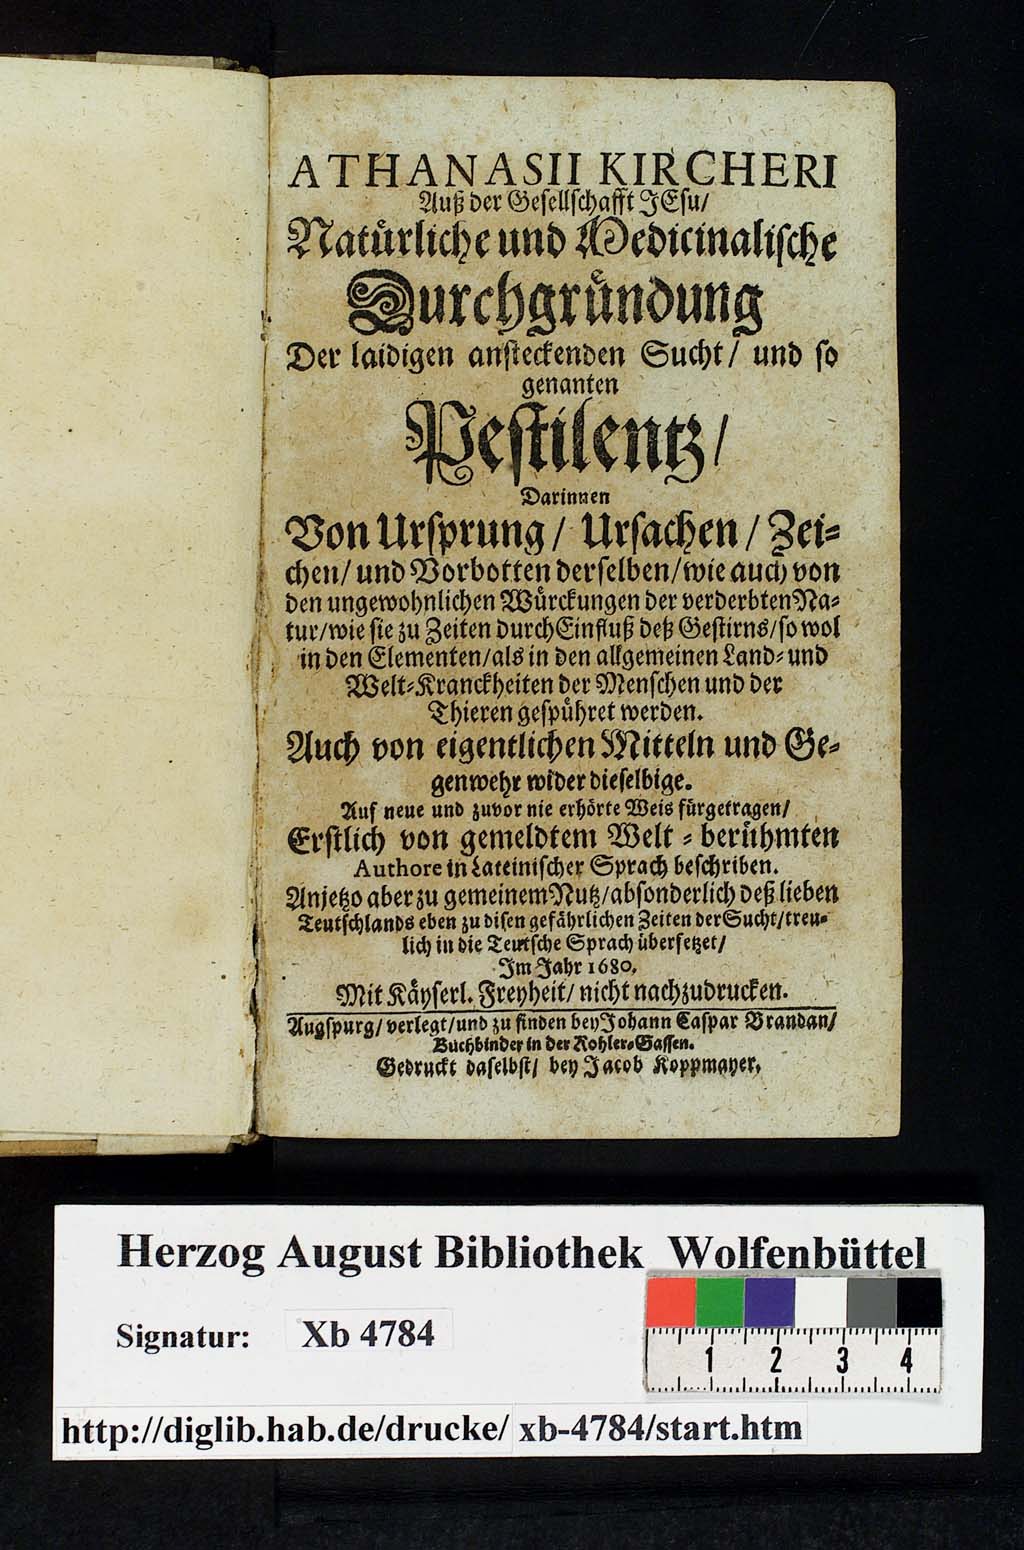 ATHANASII KIRCHERI
Auß der Gesellschafft JEsu/
Natürliche und Medicinalische
Durchgründung
Der laidigen ansteckenden Sucht/ und so
genanten
Pestilentz/
Darinnen
Von Ursprung/ Ursachen/ Zei-
chen/ und Vorbotten derselben/ wie auch von
den ungewohnlichen Würckungen der verderbten Na-
tur/ wie sie zu Zeiten durch Einfluß deß Gestirns/ so wol
in den Elementen/ als in den allgemeinen Land- und
Welt-Kranckheiten der Menschen und der
Thieren gespühret werden.
Auch von eigentlichen Mitteln und Ge-
genwehr wider dieselbige.
Auf neue und zuvor nie erhörte Weis fürgetragen/
Erstlich von gemeldtem Welt-berühmten
Authore in Lateinischer Sprach beschriben.
Anjetzo aber zu gemeinem Nutz/ absonderlich deß lieben
Teutschlands eben zu disen gefährlichen Zeiten der Sucht/ treu-
lich in die Teutsche Sprach übersetzet/
Im Jahr 1680.
Mit Käyserl. Freyheit/ nicht nachzudrucken.
Augspurg/ verlegt/ und zu finden bey Johann Caspar Brandan/
Buchbinder in der Kohler-Gassen.
Gedruckt daselbst/ bey Jacob Koppmayer.
Herzog August Bibliothek Wolfenbüttel
Signatur: Xb 4784
1 2 3 4
http://diglib.hab.de/drucke/ xb-4784/start.htm